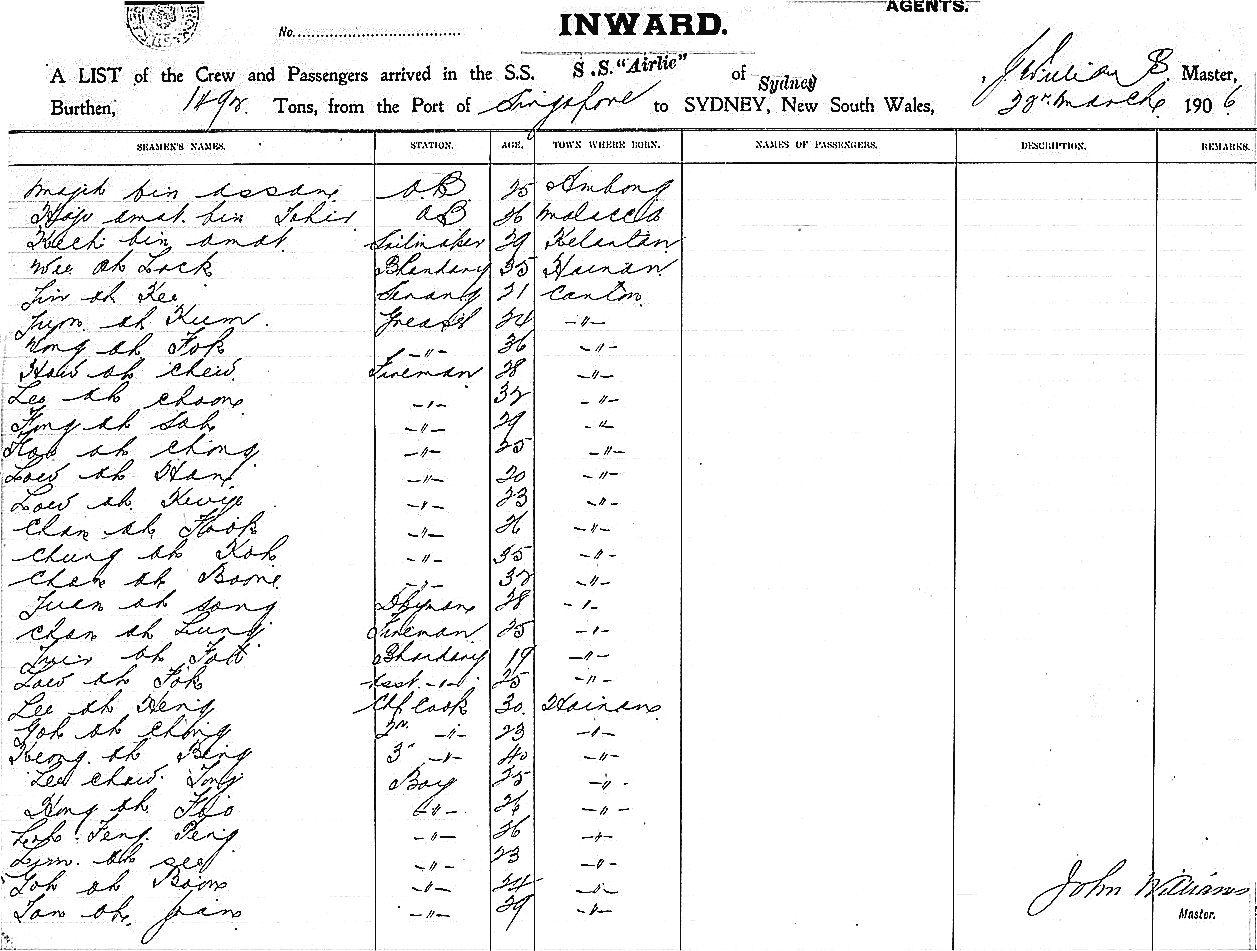 AGENTS.
No.
INWARD.
A LIST of the Crew and Passengers arrived in the S.S. S.S. "Airlie" of Sydney Master,
Burthen, 1492 Tons, from the Port of Singapore to SYDNEY, New South Wales, March 1906
SEAMEN'S NAMES. STATION. AGE. TOWN WHERE BORN. NAMES OF PASSENGERS. DESCRIPTION. REMARKS.
Majid bin Assan A.B 25 Ambong
amat bin Tahir AB 26 Malacca
Kech bin amat Sailmaker 29 Kelantan
Wee ah Lock Bhandary 35 Hainan
ah Kee 21 Canton
ah Kum Greaser 24 -"-
Wong ah Fok -"- 36 -"-
How ah Chew Fireman 28 -"-
Lee ah Choon -"- 32 -"-
Fong ah Sak -"- 29 -"-
ah Chong -"- 25 -"-
Low ah Han -"- 20 -"-
Low ah -"- 23 -"-
Chan ah Hook -"- 26 -"-
Chung ah Koh -"- 35 -"-
Chan ah Boone -"- 32 -"-
Juan ah Song 28 -"-
Chan ah Lung Fireman 25 -"-
ah Bhandary 19 -"-
Low ah Fok Asst -"- 25 -"-
Lee ah Heng Chf Cook 30 Hainan
Goh ah Chong 2nd -"- 23 -"-
Keong ah Bing 3rd -"- 40 -"-
Lee Chow Tong Boy 25 -"-
Hong ah -"- 26 -"-
Loh Feng Peng -"- 26 -"-
Lim ah See -"- 23 -"-
Goh ah Boon -"- 24 -"-
Tan ah Juan -"- 29 -"-
John Williams
Master.